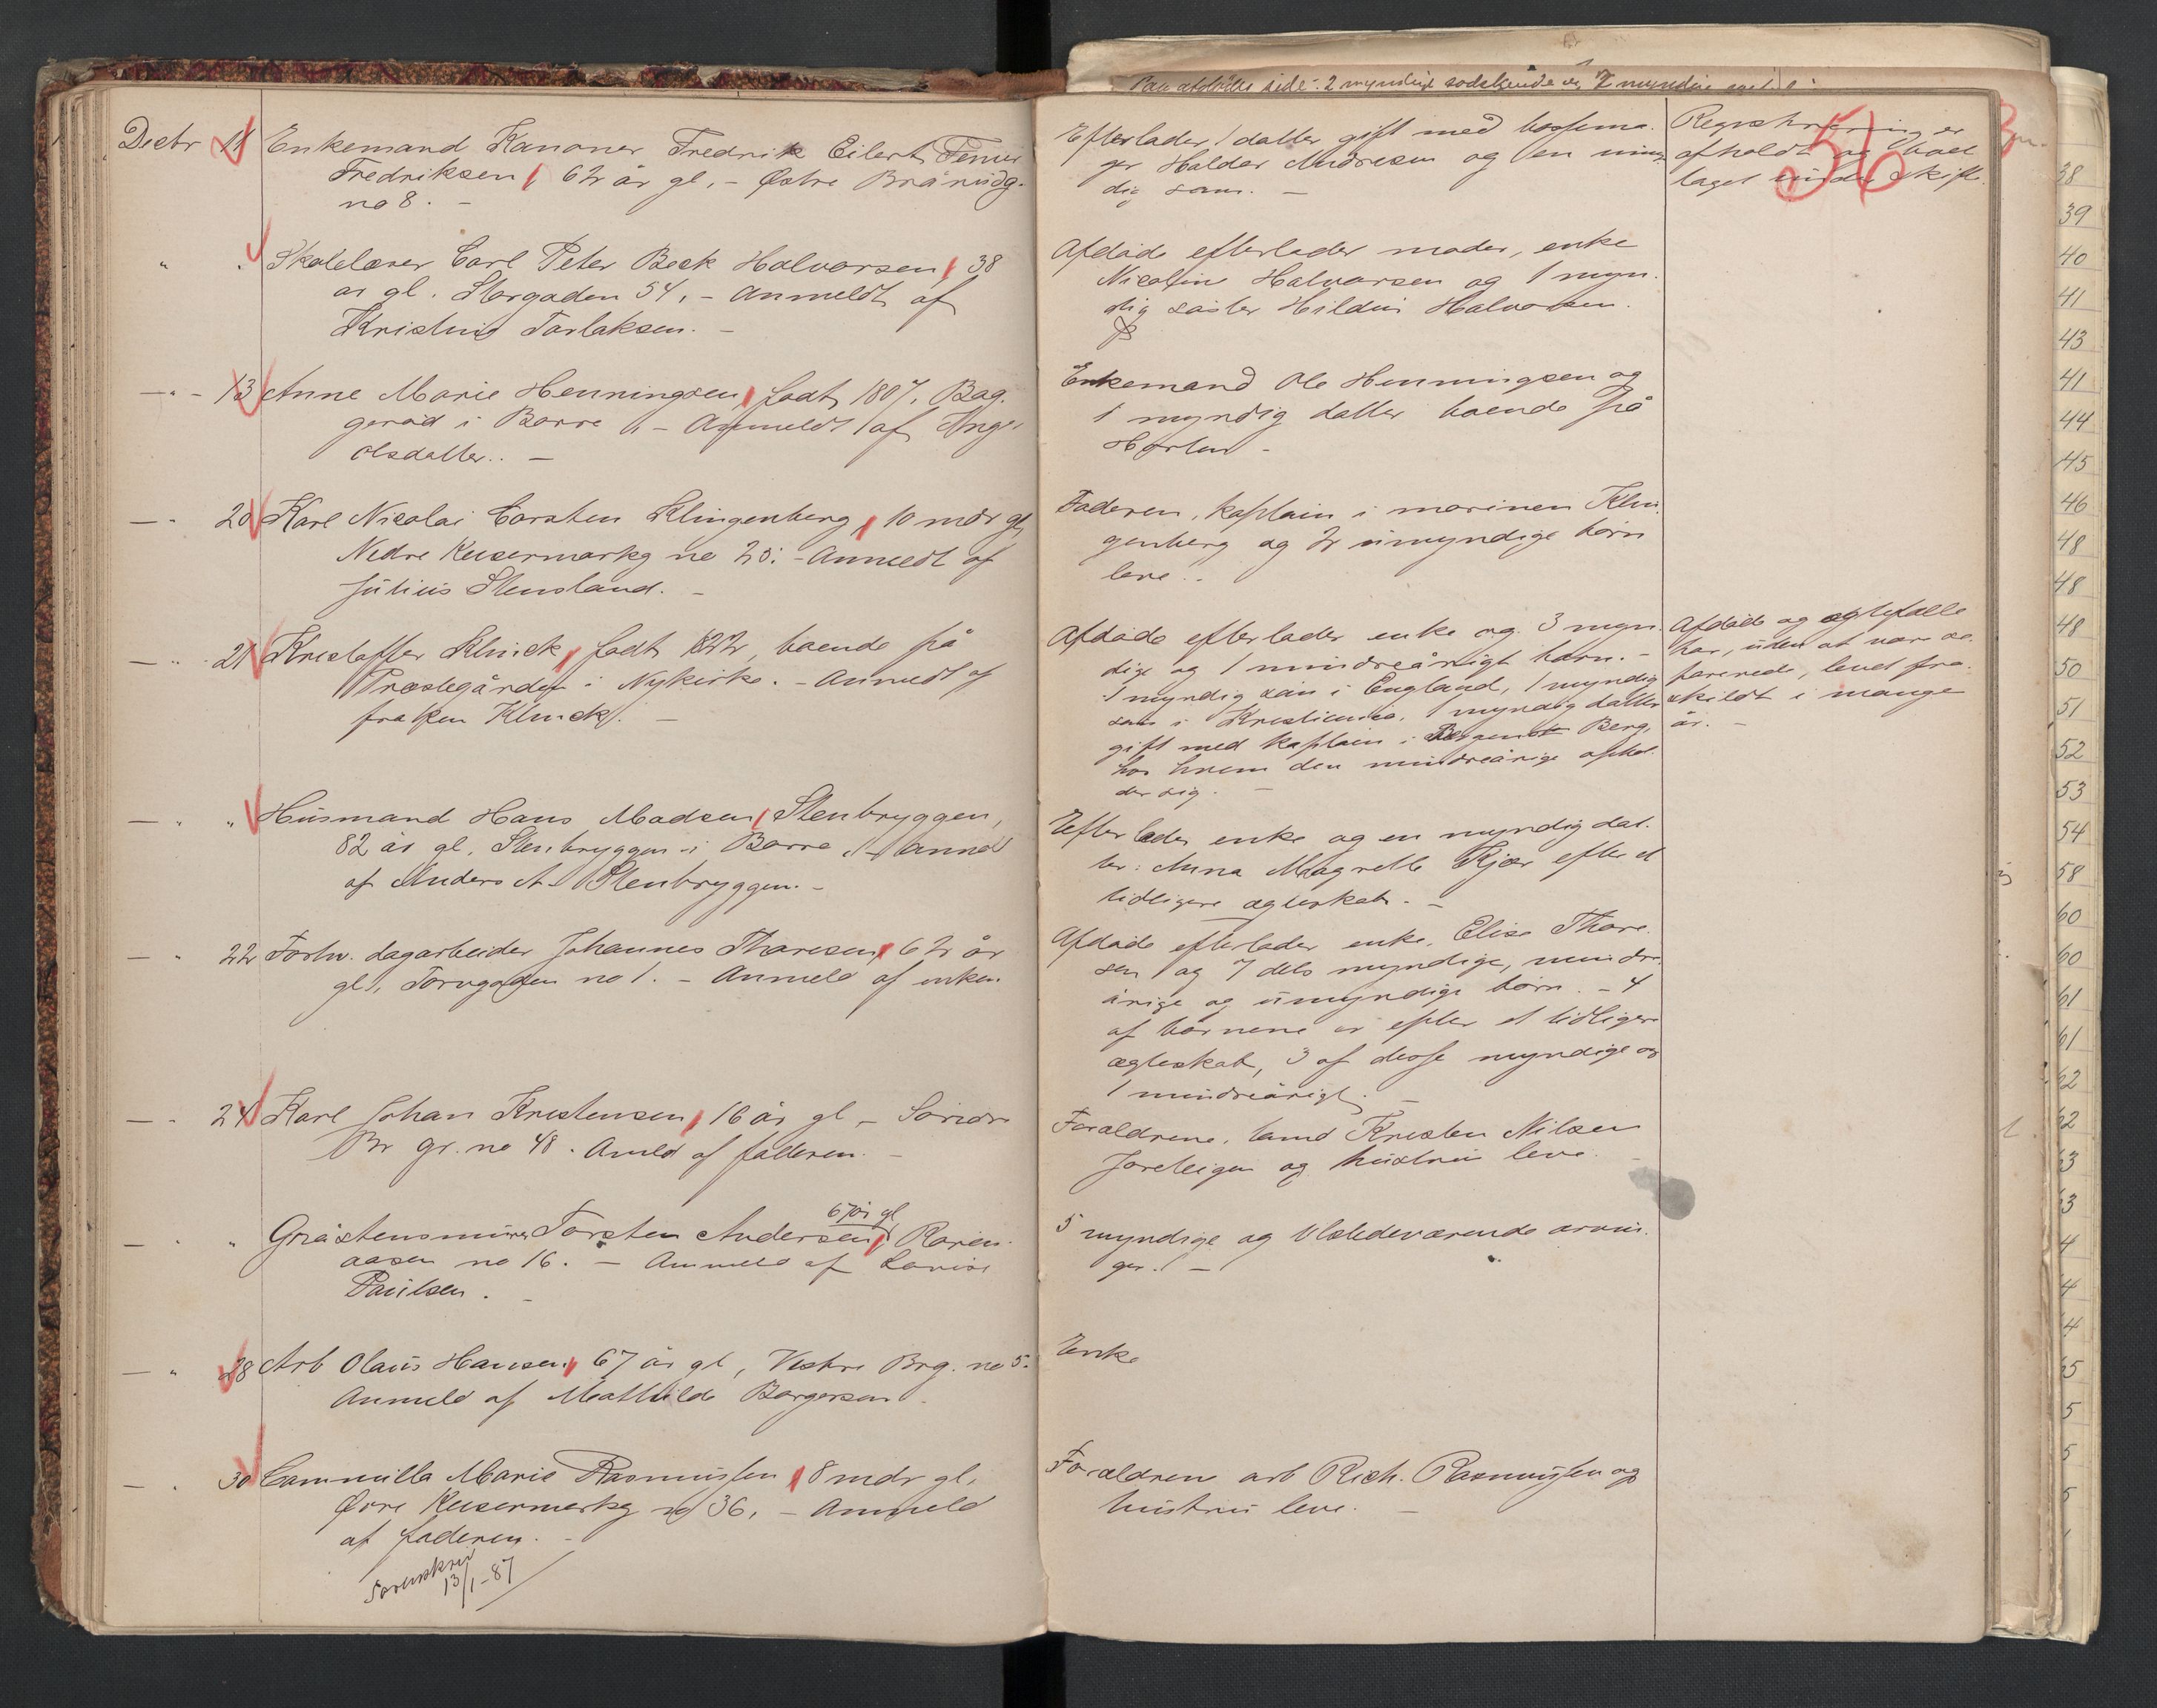 Decbr 11 Enkemand Kanoner Fredrik Eilert
Fredriksen, 62 år gl. - Østre
no 8. -
" " Skolelærer Carl Peter Beck Halvorsen, 38
år gl. Storgaden 54. - Anmeldt af
Kristine Torlaksen. -
— " - 13 Anne Marie Henningsen, født 1807,
i Borre. - Anmeldt af
Olsdatter. -
— " 20 Karl Nicolai Carsten Klingenberg, 10 mdr gl,
Nedre Keisermarkg no 20. - Anmeldt af
Julius Stensland. -
— " 21 Kristoffer Klinck, født 1822, boende på
Præstegården i Nykirke. - Anmeldt af
frøken Klinck. -
— " " Husmand Hans Madsen, Stenbryggen,
82 år gl, Stenbryggen i Borre. - Anmel
af Anders A. Stenbryggen. -
— " 22 Forhv. dagarbeider Johannes Thoresen, 62 år
gl, Torvgaden no 1. - Anmeld af enken.
— " 24 Karl Johan Kristensen, 16 år gl - Søndre
Br gr. no 48. Anmld af faderen. -
67 år gl
— " " Gråstensmurer Torsten Andersen,
aasen no 16. - Anmeld af Lovise
Paulsen. -
— " 28 Arb Olaus Hansen, 67 år gl, Vestre Brg. no 5.
Anmeld af Mathilde Borgersen.
— " 30 Cammilla Marie Rasmussen, 8 mdr gl,
Øvre Keisermarkg no 36. - Anmeld
af faderen. -
Sorenskriv
13/1-87
56
Efterlader 1 datter gift med bøssema-
ger Haldor Andresen og en myn
dig søn. -
Registrering er
afholdt og boet
taget under skifte.
Afdøde efterlader moder, enke
Nicoline Halvorsen og 1 myn-
dig søster Hilda Halvorsen.
Enkemand Ole Henningsen og
1 myndig datter boende på
Horten -
Faderen, kaptein i marinen Klin-
genberg og 2 umyndige børn
leve. -
Afdøde efterlader enke og 3 myn-
dige og 1 mindreårigt barn. -
1 myndig søn i England, 1 myndig
søn i Kristiania, 1 myndig datter
gift med kaptein i Berg,
hos hvem den mindreårige ophol-
der sig. -
Afdøde og ægtefælle
har, uden at være se-
parerede, levet fra-
skildt i mange
år. -
Efterlader enke og en myndig dat-
ter: Anna Magrette Kjær efter et
tidligere ægteskab. -
Afdøde efterlader enke, Elise Thore-
sen og 7 dels myndige, mindre-
årige og umyndige børn. - 4
af børnene er efter et tidligere
ægteskab, 3 af disse myndige og
1 mindreårigt. -
Forældrene, tømd Kristen Nilsen
og hustru leve. -
5 myndige og tilstedeværende arvin-
ger. -
Enke
Forældrene arb Rich. Rasmussen og
hustru leve. -
38
39
40
41
43
41
44
45
46
48
48
48
50
51
52
53
54
58
60
60
61
61
62
62
63
63
4
4
4
65
5
5
5